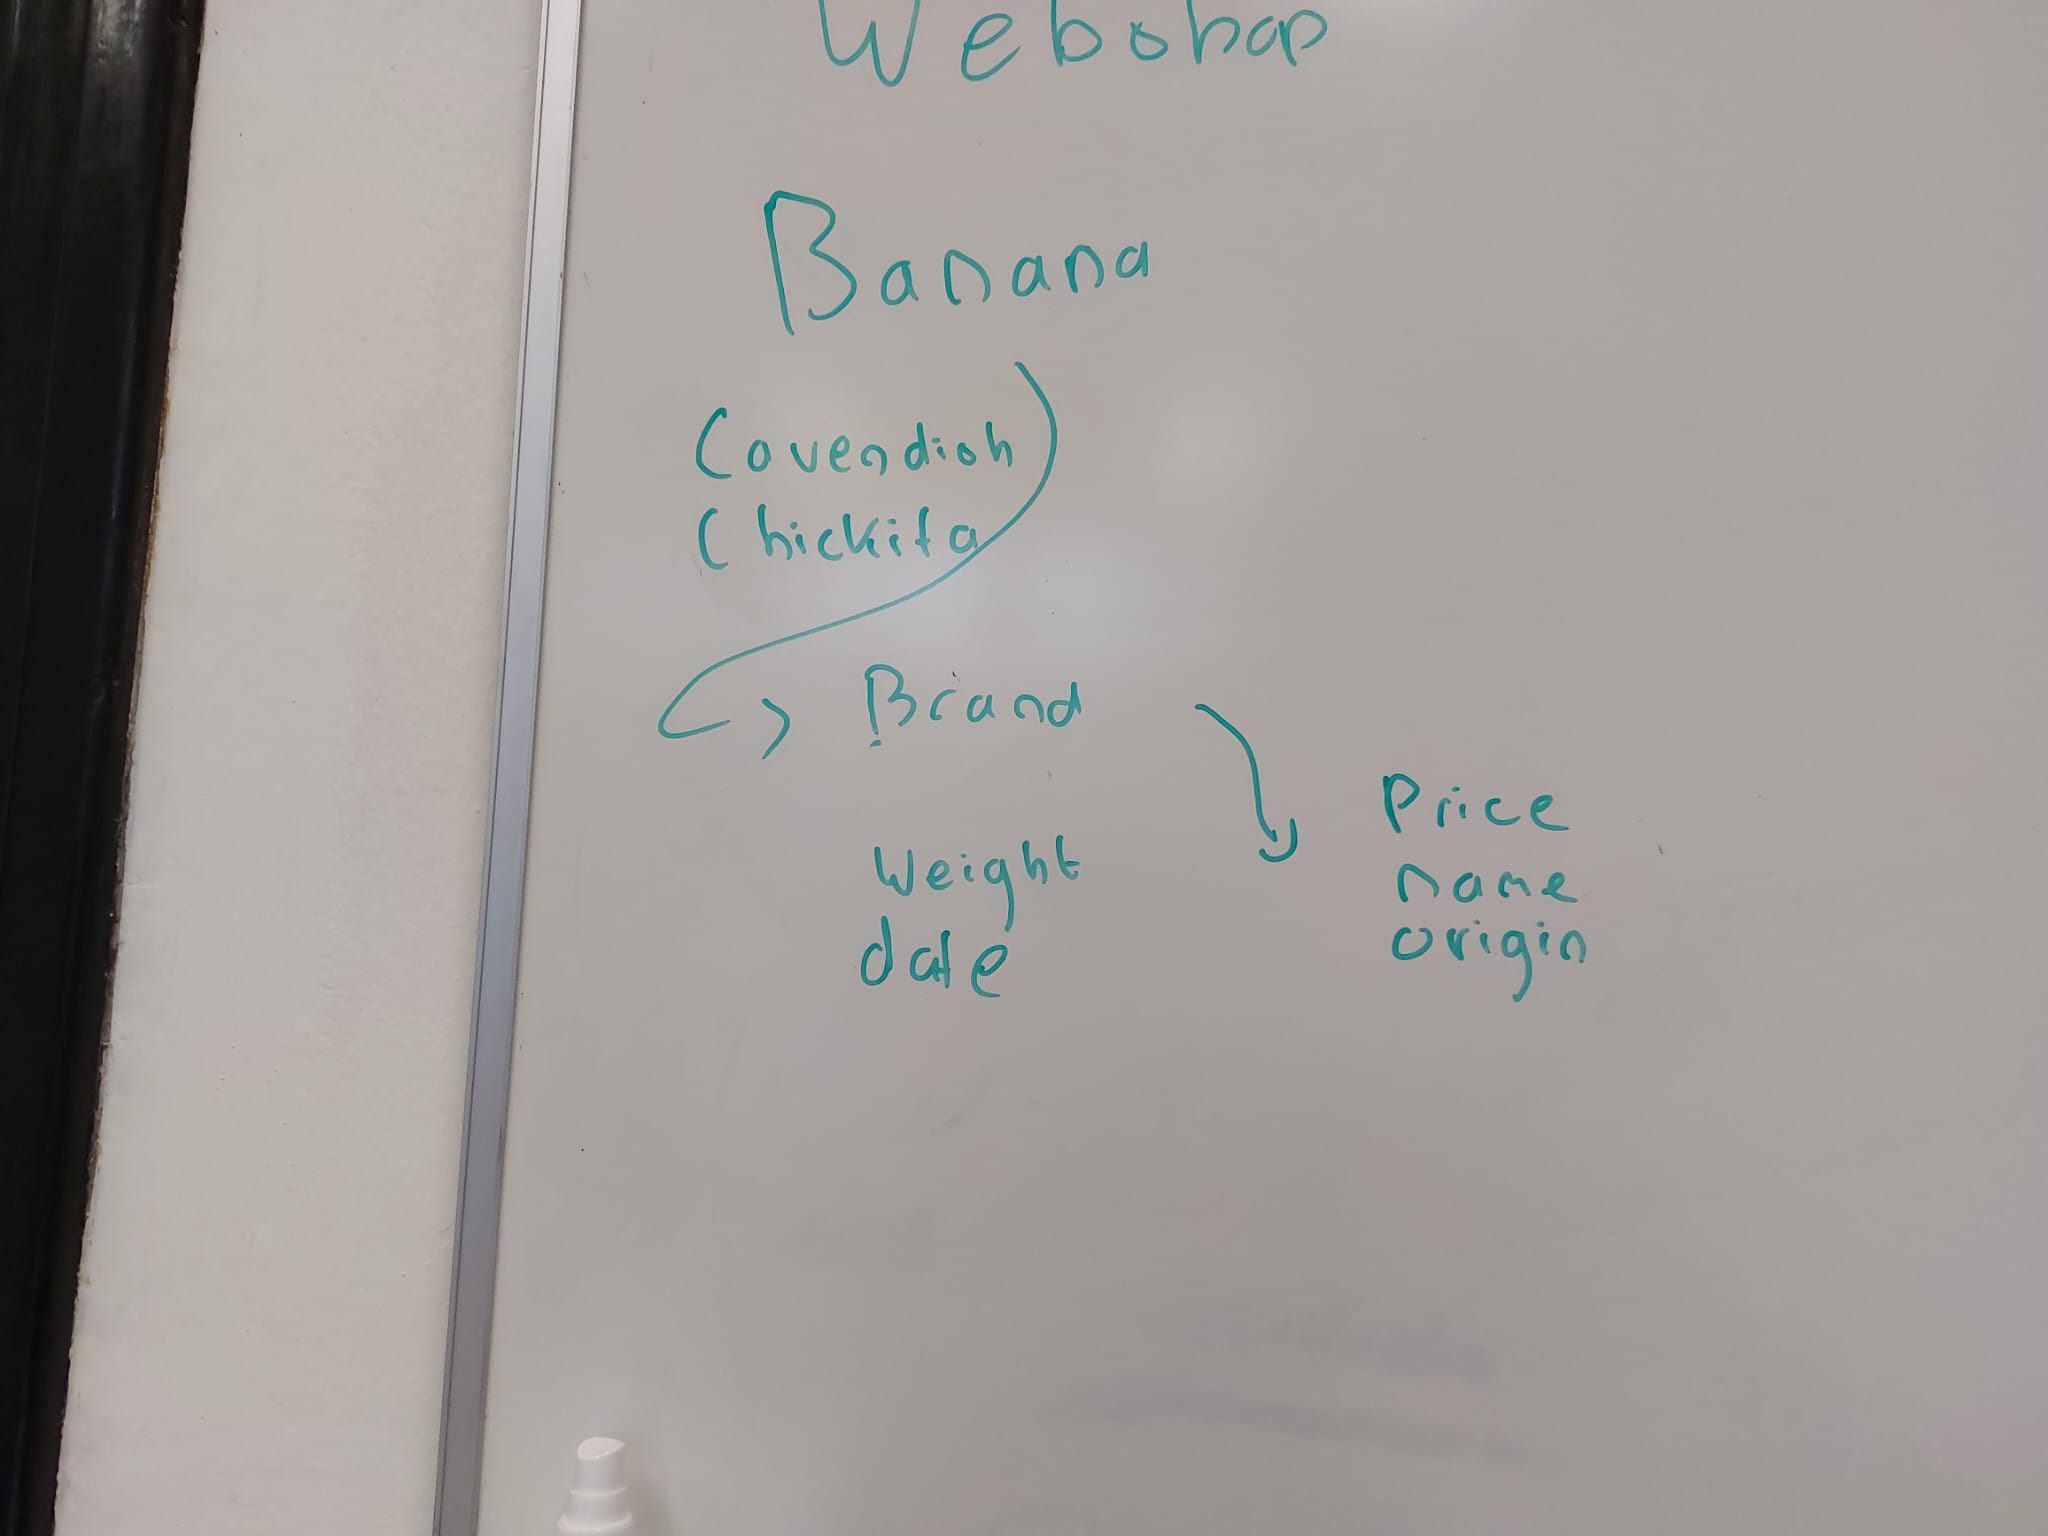 Webshop
Banana
Cavendish
Chickita
Brand
Weight
date
Price
name
origin